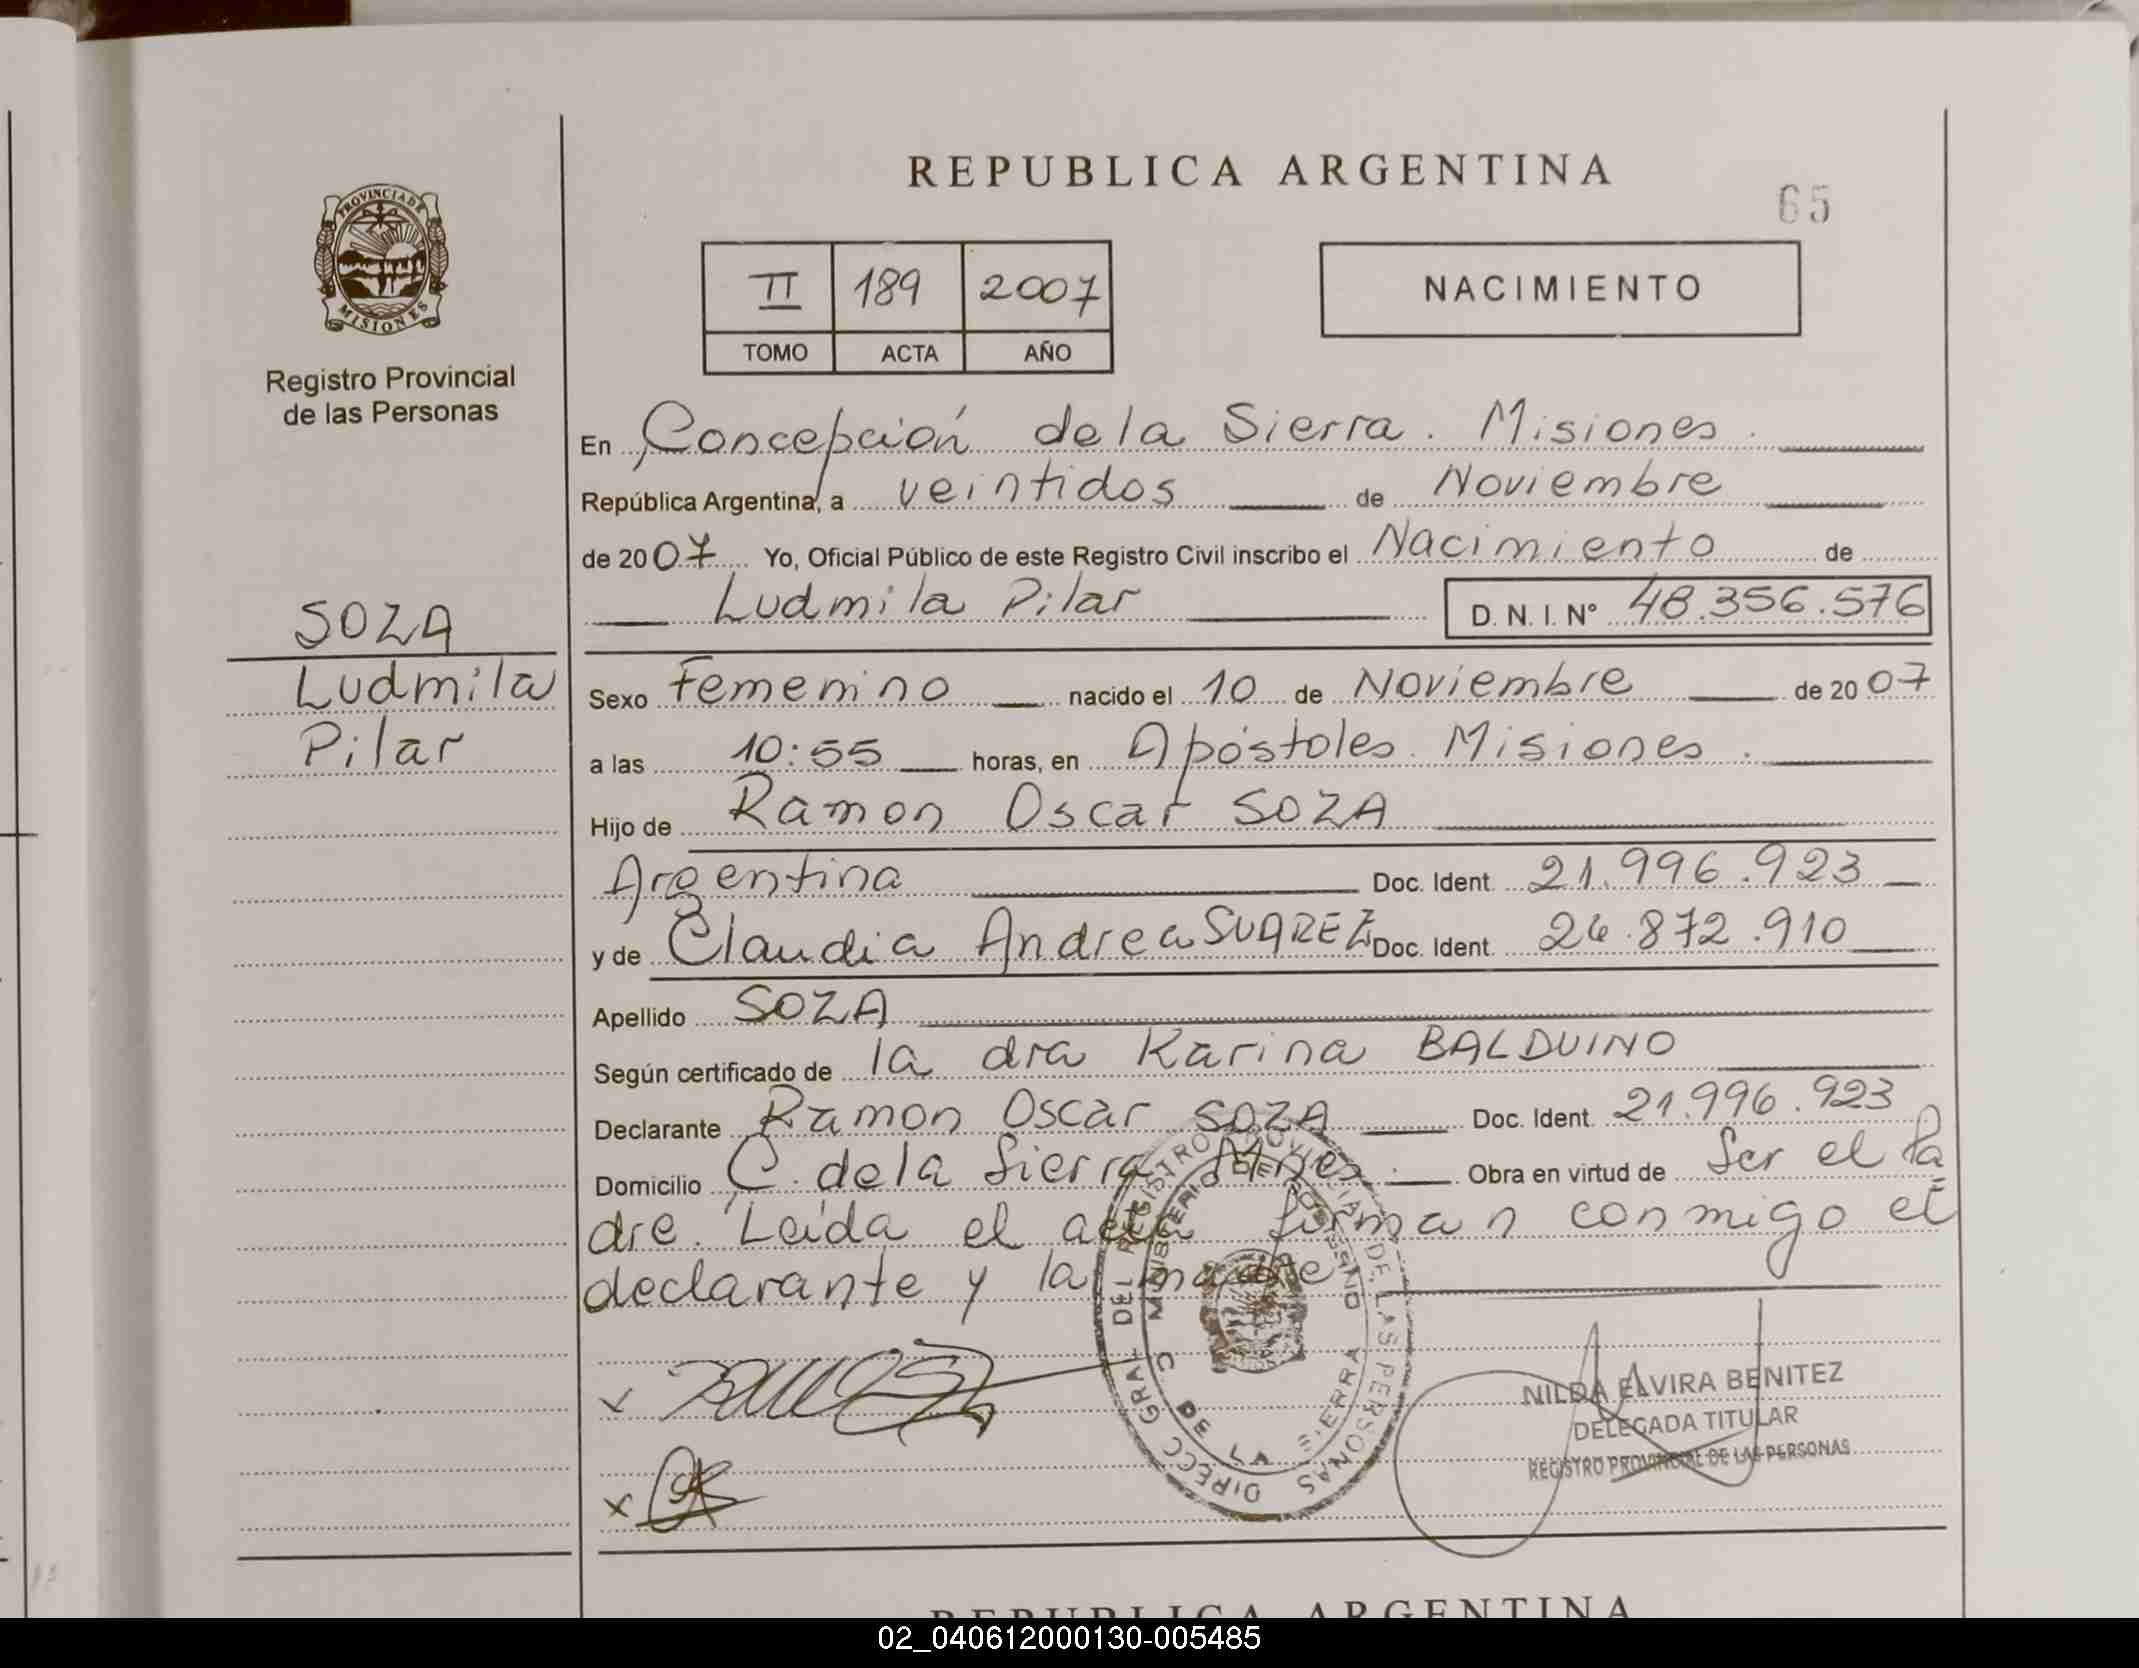 REPUBLICA ARGENTINA
65
PROVINCIA DE MISIONES
II 189 2007
TOMO ACTA AÑO
NACIMIENTO
Registro Provincial
de las Personas
En Concepción de la Sierra. Misiones.
República Argentina, a veintidos de Noviembre
de 2007 Yo, Oficial Público de este Registro Civil inscribo el Nacimiento de
Ludmila Pilar D. N. I. N° 48.356.576
SOZA
Ludmila
Pilar
Sexo Femenino nacido el 10 de Noviembre de 2007
a las 10:55 horas, en Apóstoles. Misiones.
Hijo de Ramon Oscar SOZA
Argentina Doc. Ident. 21.996.923
y de Claudia Andrea SUAREZ Doc. Ident. 24.872.910
Apellido SOZA
Según certificado de la dra Karina BALDUINO
Declarante Ramon Oscar SOZA Doc. Ident. 21.996.923
Domicilio C. de la Sierra Mnes. Obra en virtud de Ser el Pa
dre. Leída el acta firman conmigo el
declarante y la madre
DIRECC GRAL DEL REGISTRO PROVINCIAL DE LAS PERSONAS
MINISTERIO DE GOBIERNO
C. DE LA SIERRA
NILDA ELVIRA BENITEZ
DELEGADA TITULAR
REGISTRO PROVINCIAL DE LAS PERSONAS
REPUBLICA ARGENTINA
02_040612000130-005485